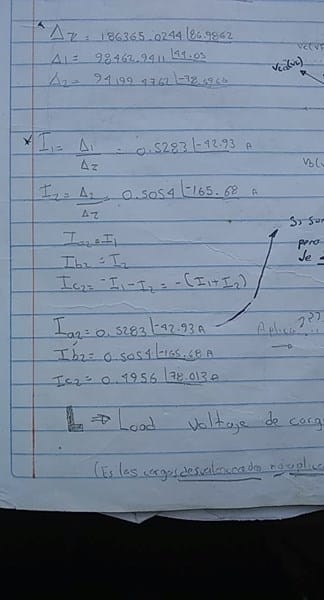 Δz = 186365.0244 ∠86.9862
Δ1 = 98462.9411 ∠44.05
Δ2 = 94199.4762 ∠-78.6966
* I1 = Δ1/Δz = 0.5283 ∠-42.93 A
I2 = Δ2/Δz 0.5054 ∠-165.68 A
Ia2 = I1
Ib2 = I2
Ic2 = -I1 - I2 = -(I1 + I2)
Ia2 = 0.5283 ∠-42.93 A
Ib2 = 0.5054 ∠-165.68 A
Ic2 = 0.4956 ∠78.013 A
Aplica???
L ⇒ Load Voltaje de carg
(Es las cargas desvalanceadas no aplica